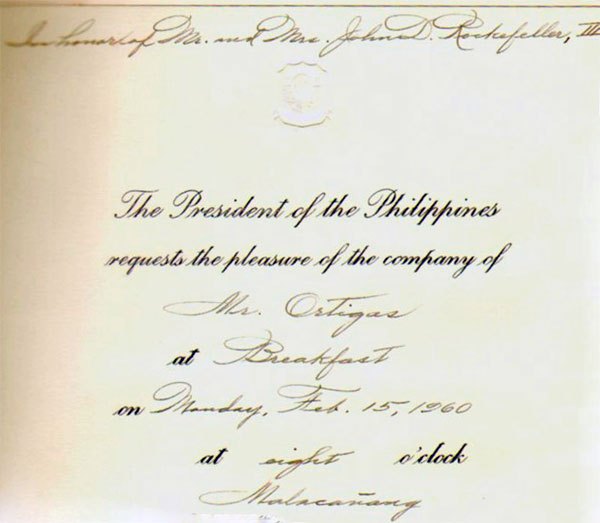 In honor of Mr. and Mrs. John D. Rockefeller, III
The President of the Philippines
requests the pleasure of the company of
Mr. Ortigas
at Breakfast
on Monday, Feb. 15, 1960
at eight o'clock
Malacañang